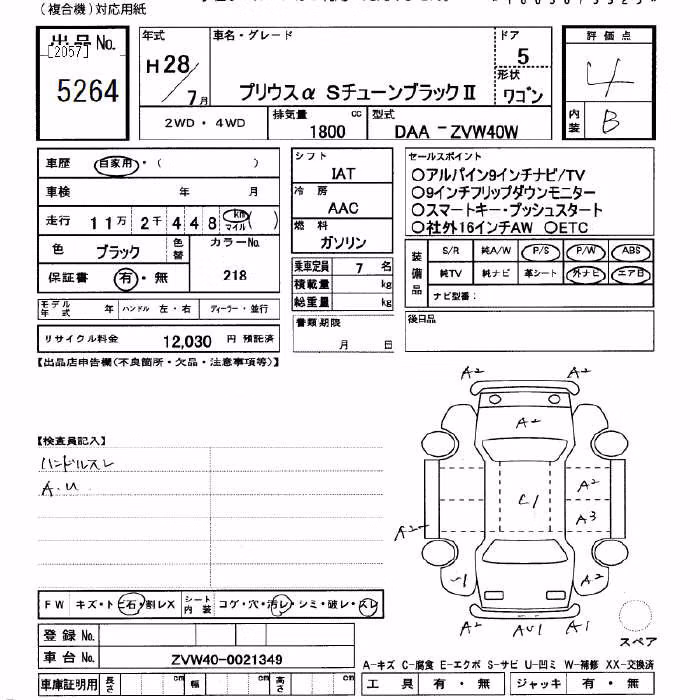 (複合機)対応用紙
出品No.
[2057]
5264
年式
H28/7月
車名・グレード
プリウスα SチューンブラックⅡ
ドア
5
形状
ワゴン
評価点
4
内装
B
2WD・4WD
排気量
1800
cc
型式
DAA-ZVW40W
車歴
自家用・( )
車検 年 月
走行 11万 2千 448 km マイル ( )
色 ブラック
色替
カラーNo.
218
保証書 有・無
モデル年式 年
ハンドル 左・右
ディーラー・並行
リサイクル料金 12,030 円 預託済
シフト
IAT
冷房
AAC
燃料
ガソリン
乗車定員 7 名
積載量 kg
総重量 kg
書類期限
月 日
セールスポイント
○アルパイン9インチナビ/TV
○9インチフリップダウンモニター
○スマートキー・プッシュスタート
○社外16インチAW ○ETC
装備品
S/R 純A/W P/S P/W ABS
純TV 純ナビ 革シート 外ナビ エアB
ナビ型番:
後日品
【出品店申告欄(不良箇所・欠品・注意事項等)】
【検査員記入】
ハンドルスレ
A.U
FW キズ・トビ石・割レX
シート内装 コゲ・穴・汚レ・シミ・破レ・スレ
登録No.
車台No. ZVW40-0021349
車庫証明用 長さ cm 幅 cm 高さ cm
A2 A2
A2
A2
C1
A3
A2
U1 A2
A2 AU1 A1
スペア
A-キズ C-腐食 E-エクボ S-サビ U-凹ミ W-補修 XX-交換済
工具 有・無 ジャッキ 有・無